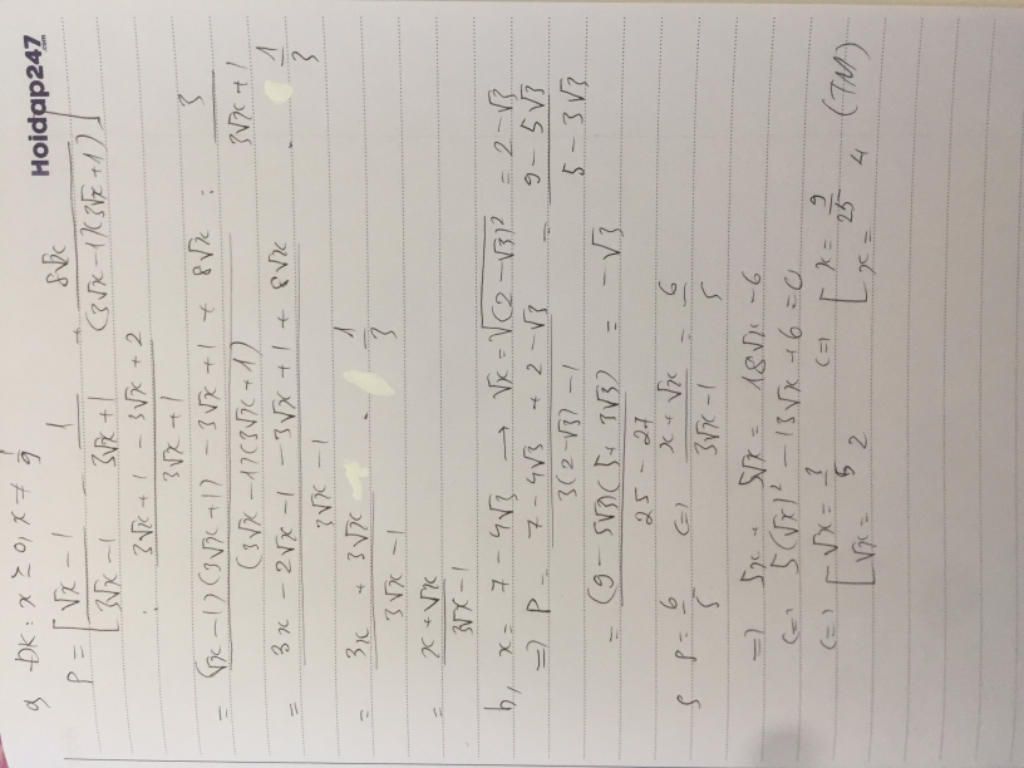 Hoidap247
.com
a, ĐK: x ≥ 0, x ≠ 1/9
P = [ (√x - 1)/(3√x - 1) - 1/(3√x + 1) + 8√x/((3√x - 1)(3√x + 1)) ]
: (3√x + 1 - 3√x + 2)/(3√x + 1)
= ((√x - 1)(3√x + 1) - 3√x + 1 + 8√x)/((3√x - 1)(3√x + 1)) : 3/(3√x + 1)
= (3x - 2√x - 1 - 3√x + 1 + 8√x)/(3√x - 1) . 1/3
= (3x + 3√x)/(3√x - 1) . 1/3
= (x + √x)/(3√x - 1)
b, x = 7 - 4√3 → √x = √(2 - √3)² = 2 - √3
=) P = (7 - 4√3 + 2 - √3)/(3(2 - √3) - 1) = (9 - 5√3)/(5 - 3√3)
= ((9 - 5√3)(5 + 3√3))/(25 - 27) = - √3
P = 6/5 (=) (x + √x)/(3√x - 1) = 6/5
=) 5x + 5√x = 18√x - 6
(=) 5(√x)² - 13√x + 6 = 0
(=) [ √x = 3/5 (=) [ x = 9/25
[ √x = 2 [ x = 4 (TM)